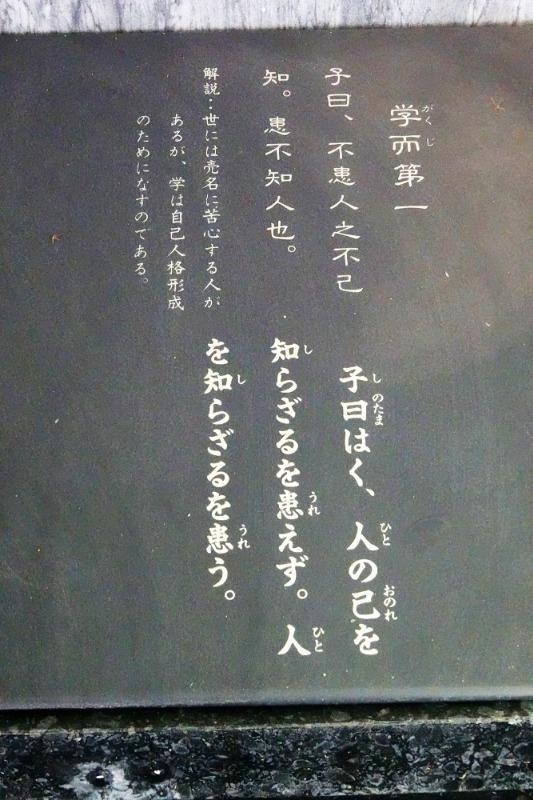 学而第一
がくじ
子曰、不患人之不己
知。患不知人也。
解説：世には売名に苦心する人が
あるが、学は自己人格形成
のためになすのである。
子曰はく、人の己を
し のたま ひと おのれ
知らざるを患えず。人
し うれ ひと
を知らざるを患う。
し うれ